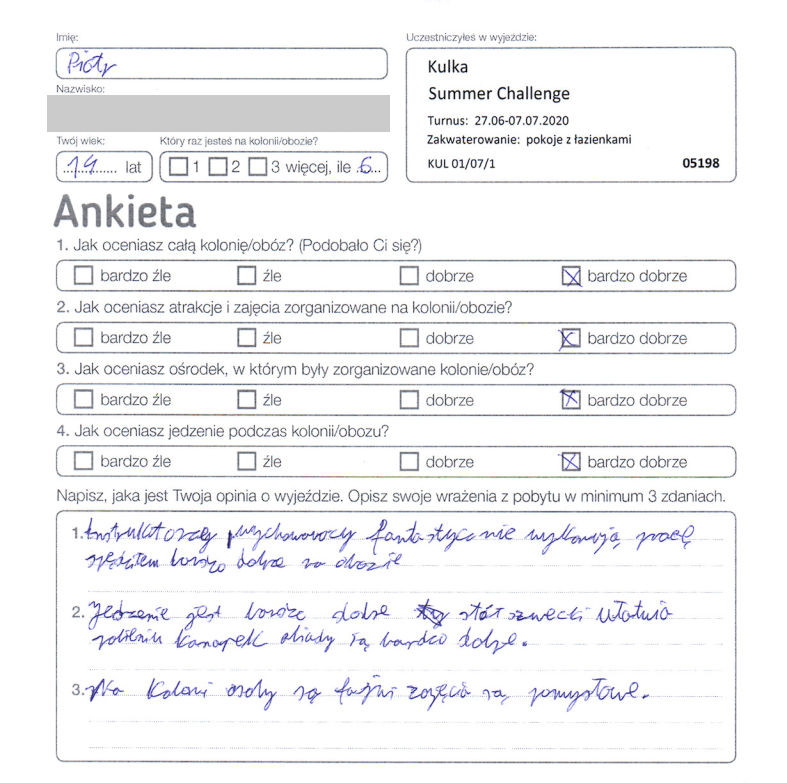 Imię:
Piotr
Nazwisko:
Twój wiek:
14 lat
Który raz jesteś na kolonii/obozie?
1 2 3 więcej, ile 6
Uczestniczyłeś w wyjeździe:
Kulka
Summer Challenge
Turnus: 27.06-07.07.2020
Zakwaterowanie: pokoje z łazienkami
KUL 01/07/1 05198
Ankieta
1. Jak oceniasz całą kolonię/obóz? (Podobało Ci się?)
bardzo źle źle dobrze bardzo dobrze
2. Jak oceniasz atrakcje i zajęcia zorganizowane na kolonii/obozie?
bardzo źle źle dobrze bardzo dobrze
3. Jak oceniasz ośrodek, w którym były zorganizowane kolonie/obóz?
bardzo źle źle dobrze bardzo dobrze
4. Jak oceniasz jedzenie podczas kolonii/obozu?
bardzo źle źle dobrze bardzo dobrze
Napisz, jaka jest Twoja opinia o wyjeździe. Opisz swoje wrażenia z pobytu w minimum 3 zdaniach.
1. Instruktorzy wychowawcy fantastycznie wykonują pracę
spędziłem bardzo dobze na obozie
2. Jedzenie jest bardzo dobre stół szwecki ułatwia
robieniu kanapek obiady są bardzo dobre.
3. Na koloni osoby są fajni zajęcia są pomysłowe.